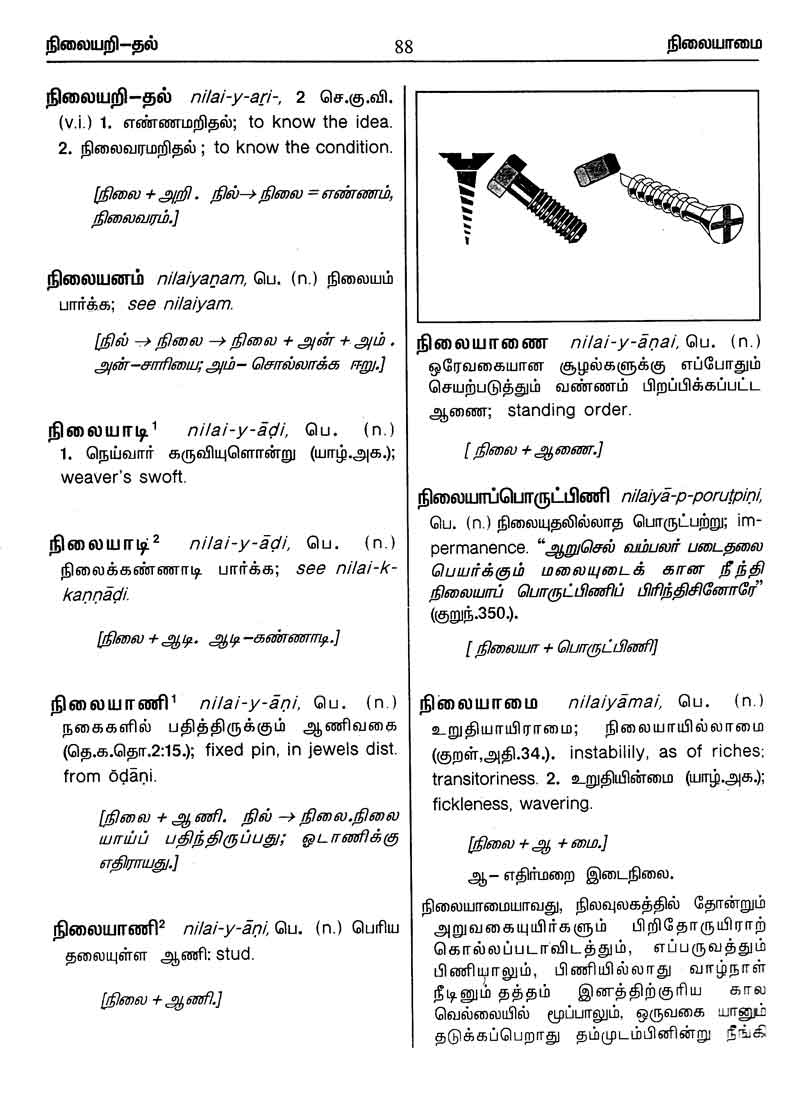 நிலையறி–தல்
88
நிலையாமை
நிலையறி–தல் nilai-y-aṟi-, 2 செ.கு.வி.
(v.i.) 1. எண்ணமறிதல்; to know the idea.
2. நிலைவரமறிதல் ; to know the condition.
[நிலை + அறி . நில்→ நிலை = எண்ணம்,
நிலைவரம்.]
நிலையனம் nilaiyaṉam, பெ. (n.) நிலையம்
பார்க்க; see nilaiyam.
[நில் → நிலை → நிலை + அன் + அம் .
அன்–சாரியை; அம்– சொல்லாக்க ஈறு.]
நிலையாடி¹ nilai-y-āḍi, பெ. (n.)
1. நெய்வார் கருவியுளொன்று (யாழ்.அக.);
weaver's swoft.
நிலையாடி² nilai-y-āḍi, பெ. (n.)
நிலைக்கண்ணாடி பார்க்க; see nilai-k-
kaṇṇāḍi.
[நிலை + ஆடி. ஆடி –கண்ணாடி.]
நிலையாணி¹ nilai-y-āṇi, பெ. (n.)
நகைகளில் பதித்திருக்கும் ஆணிவகை
(தெ.க.தொ.2:15.); fixed pin, in jewels dist.
from ōḍāṇi.
[நிலை + ஆணி. நில் → நிலை.நிலை
யாய்ப் பதிந்திருப்பது; ஓடாணிக்கு
எதிராயது.]
நிலையாணி² nilai-y-āṇi, பெ. (n.) பெரிய
தலையுள்ள ஆணி: stud.
[நிலை + ஆணி.]
நிலையாணை nilai-y-āṇai, பெ. (n.)
ஒரேவகையான சூழல்களுக்கு எப்போதும்
செயற்படுத்தும் வண்ணம் பிறப்பிக்கப்பட்ட
ஆணை; standing order.
[ நிலை + ஆணை.]
நிலையாப்பொருட்பிணி nilaiyā-p-poruṭpiṇi,
பெ. (n.) நிலையுதலில்லாத பொருட்பற்று; im-
permanence. “ஆறுசெல் வம்பலர் படைதலை
பெயர்க்கும் மலையுடைக் கான நீந்தி
நிலையாப் பொருட்பிணிப் பிரிந்திசினோரே”
(குறுந்.350.).
[ நிலையா + பொருட்பிணி]
நிலையாமை nilaiyāmai, பெ. (n.)
உறுதியாயிராமை; நிலையாயில்லாமை
(குறள்,அதி.34.). instabilily, as of riches;
transitoriness. 2. உறுதியின்மை (யாழ்.அக.);
fickleness, wavering.
[நிலை + ஆ + மை.]
ஆ – எதிர்மறை இடைநிலை.
நிலையாமையாவது, நிலவுலகத்தில் தோன்றும்
அறுவகையுயிர்களும் பிறிதோருயிராற்
கொல்லப்படாவிடத்தும், எப்பருவத்தும்
பிணியாலும், பிணியில்லாது வாழ்நாள்
நீடினும் தத்தம் இனத்திற்குரிய கால
வெல்லையில் மூப்பாலும், ஒருவகை யானும்
தடுக்கப்பெறாது தம்முடம்பினின்று நீங்கி